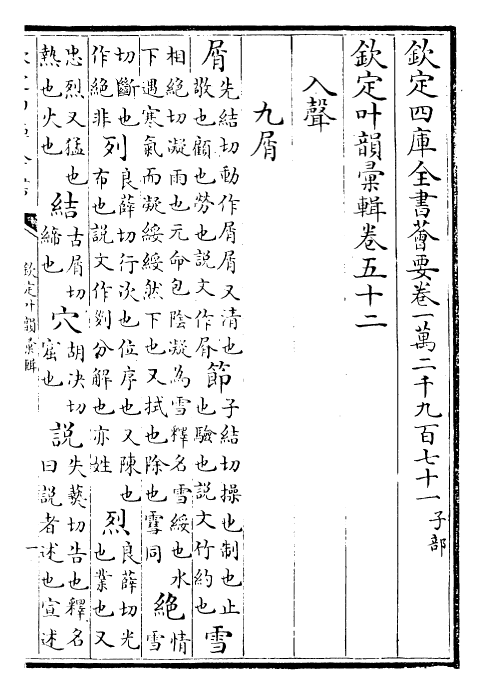 欽定四庫全書薈要卷一萬二千九百七十一 子部
欽定叶韻彚輯卷五十二
入聲
九屑
屑 先結切動作屑屑又清也敬也顧也勞也説文作屑 節 子結切操也制也止也驗也説文竹約也 雪
相絶切凝雨也元命包陰凝為雪釋名雪綏也水下遇寒氣而凝綏綏然下也又拭也除也䨮同 絶 情雪
切斷也作絶非 列 良薛切行次也位序也又陳也布也説文作𠛱分解也亦姓 烈 良薛切光也業也又
忠烈又猛也熱也火也 結 古屑切締也 穴 胡决切窟也 説 失爇切告也釋名曰説者述也宣述
欽定叶韻彚輯
一